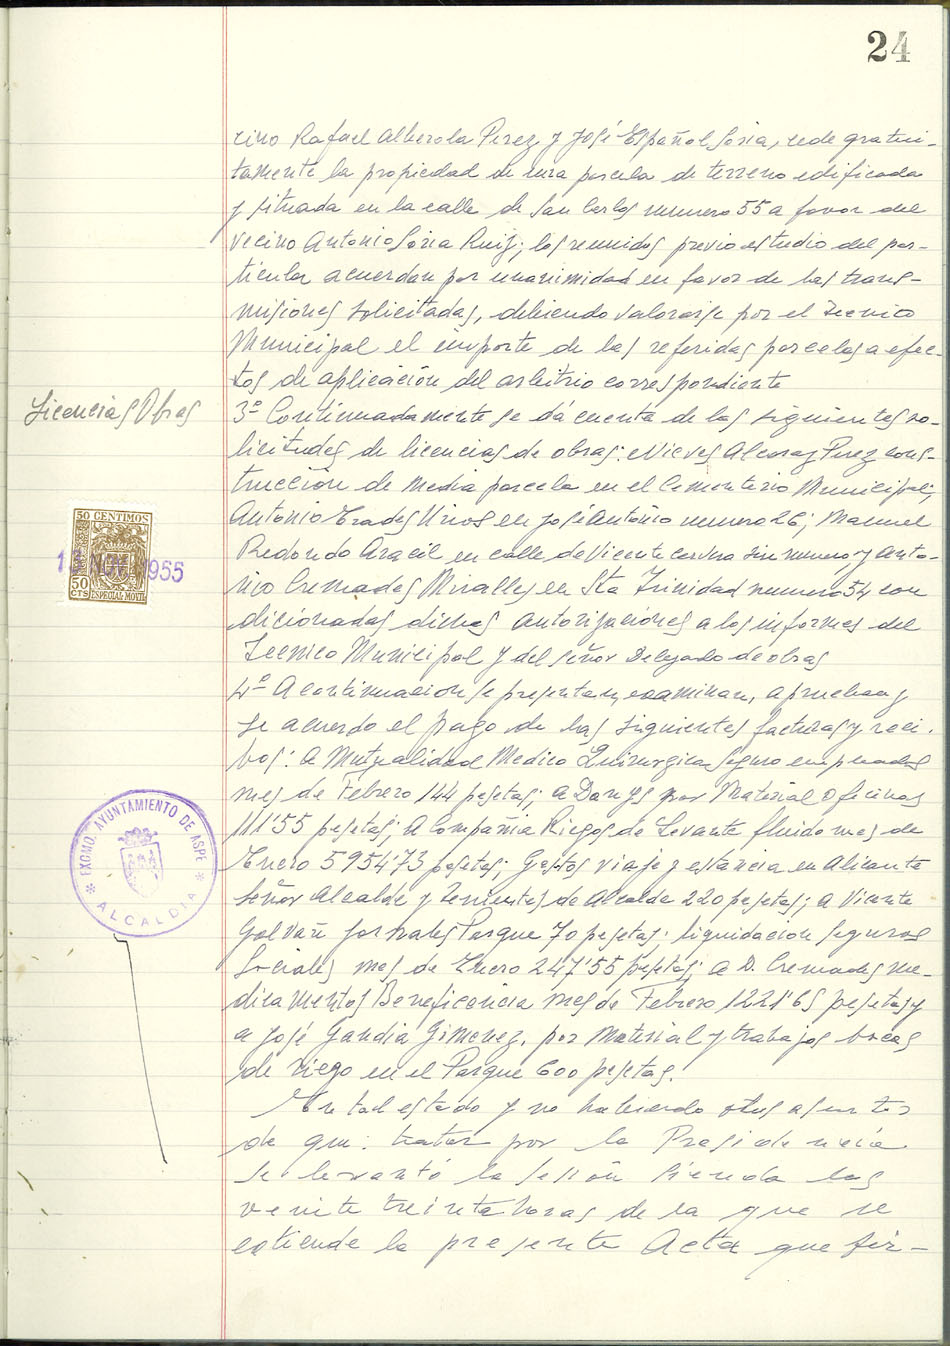 24
cino Rafael Alberola Perez y José Español Soria, cede gratui-
tamente la propiedad de una parcela de terreno edificada
y situada en la calle de San Carlos numero 55 a favor del
vecino Antonio Soria Ruiz; los reunidos previo estudio del par-
ticular acuerdan por unanimidad en favor de las trans-
misiones solicitadas, debiendo valorarse por el Tecnico
Municipal el importe de las referidas parcelas a efec-
tos de aplicación del arbitrio correspondiente
Licencias Obras
3º Continuadamente se dá cuenta de las siguientes so-
licitudes de licencias de obras: Nieves Alcaraz Perez cons-
trucción de media parcela en el Cementerio Municipal;
Antonio Prades Urios en José Antonio numero 26; Manuel
Redondo Aracil en calle de Vicente Cervera sin numero y Anto-
nio Cremades Miralles en Sta Trinidad numero 54 con
dicionadas dichas autorizaciones a los informes del
Tecnico Municipal y del señor Delegado de obras
50 CENTIMOS
NOV 1955
50 CTS ESPECIAL MOVIL
4º A continuacion se presentan, examinan, aprueban y
se acuerdo el pago de las siguientes facturas y reci-
bos: a Mutualidad Medico Quirurgica seguro empleados
mes de Febrero 144 pesetas; a Danys por Material oficinas
111'55 pesetas; a Compañia Riegos de Levante fluido mes de
Enero 5954'73 pesetas; Gastos viaje y estancia en Alicante
señor Alcalde y Tenientes de Alcalde 220 pesetas; a Vicente
Galvañ jornales Parque 70 pesetas; liquidacion seguros
Sociales mes de Enero 247'55 pesetas; a D. Cremades me-
dicamentos Beneficencia mes de Febrero 1221'65 pesetas y
a José Gandia Gimenez, por material y trabajos bocas
de riego en el Parque 600 pesetas.
EXCMO. AYUNTAMIENTO DE ASPE
ALCALDIA
En tal estado y no habiendo otros asuntos
de que tratar por la Presidencia
se levantó la sesión siendo las
veinte treinta horas de la que se
extiende la presente Acta que fir-